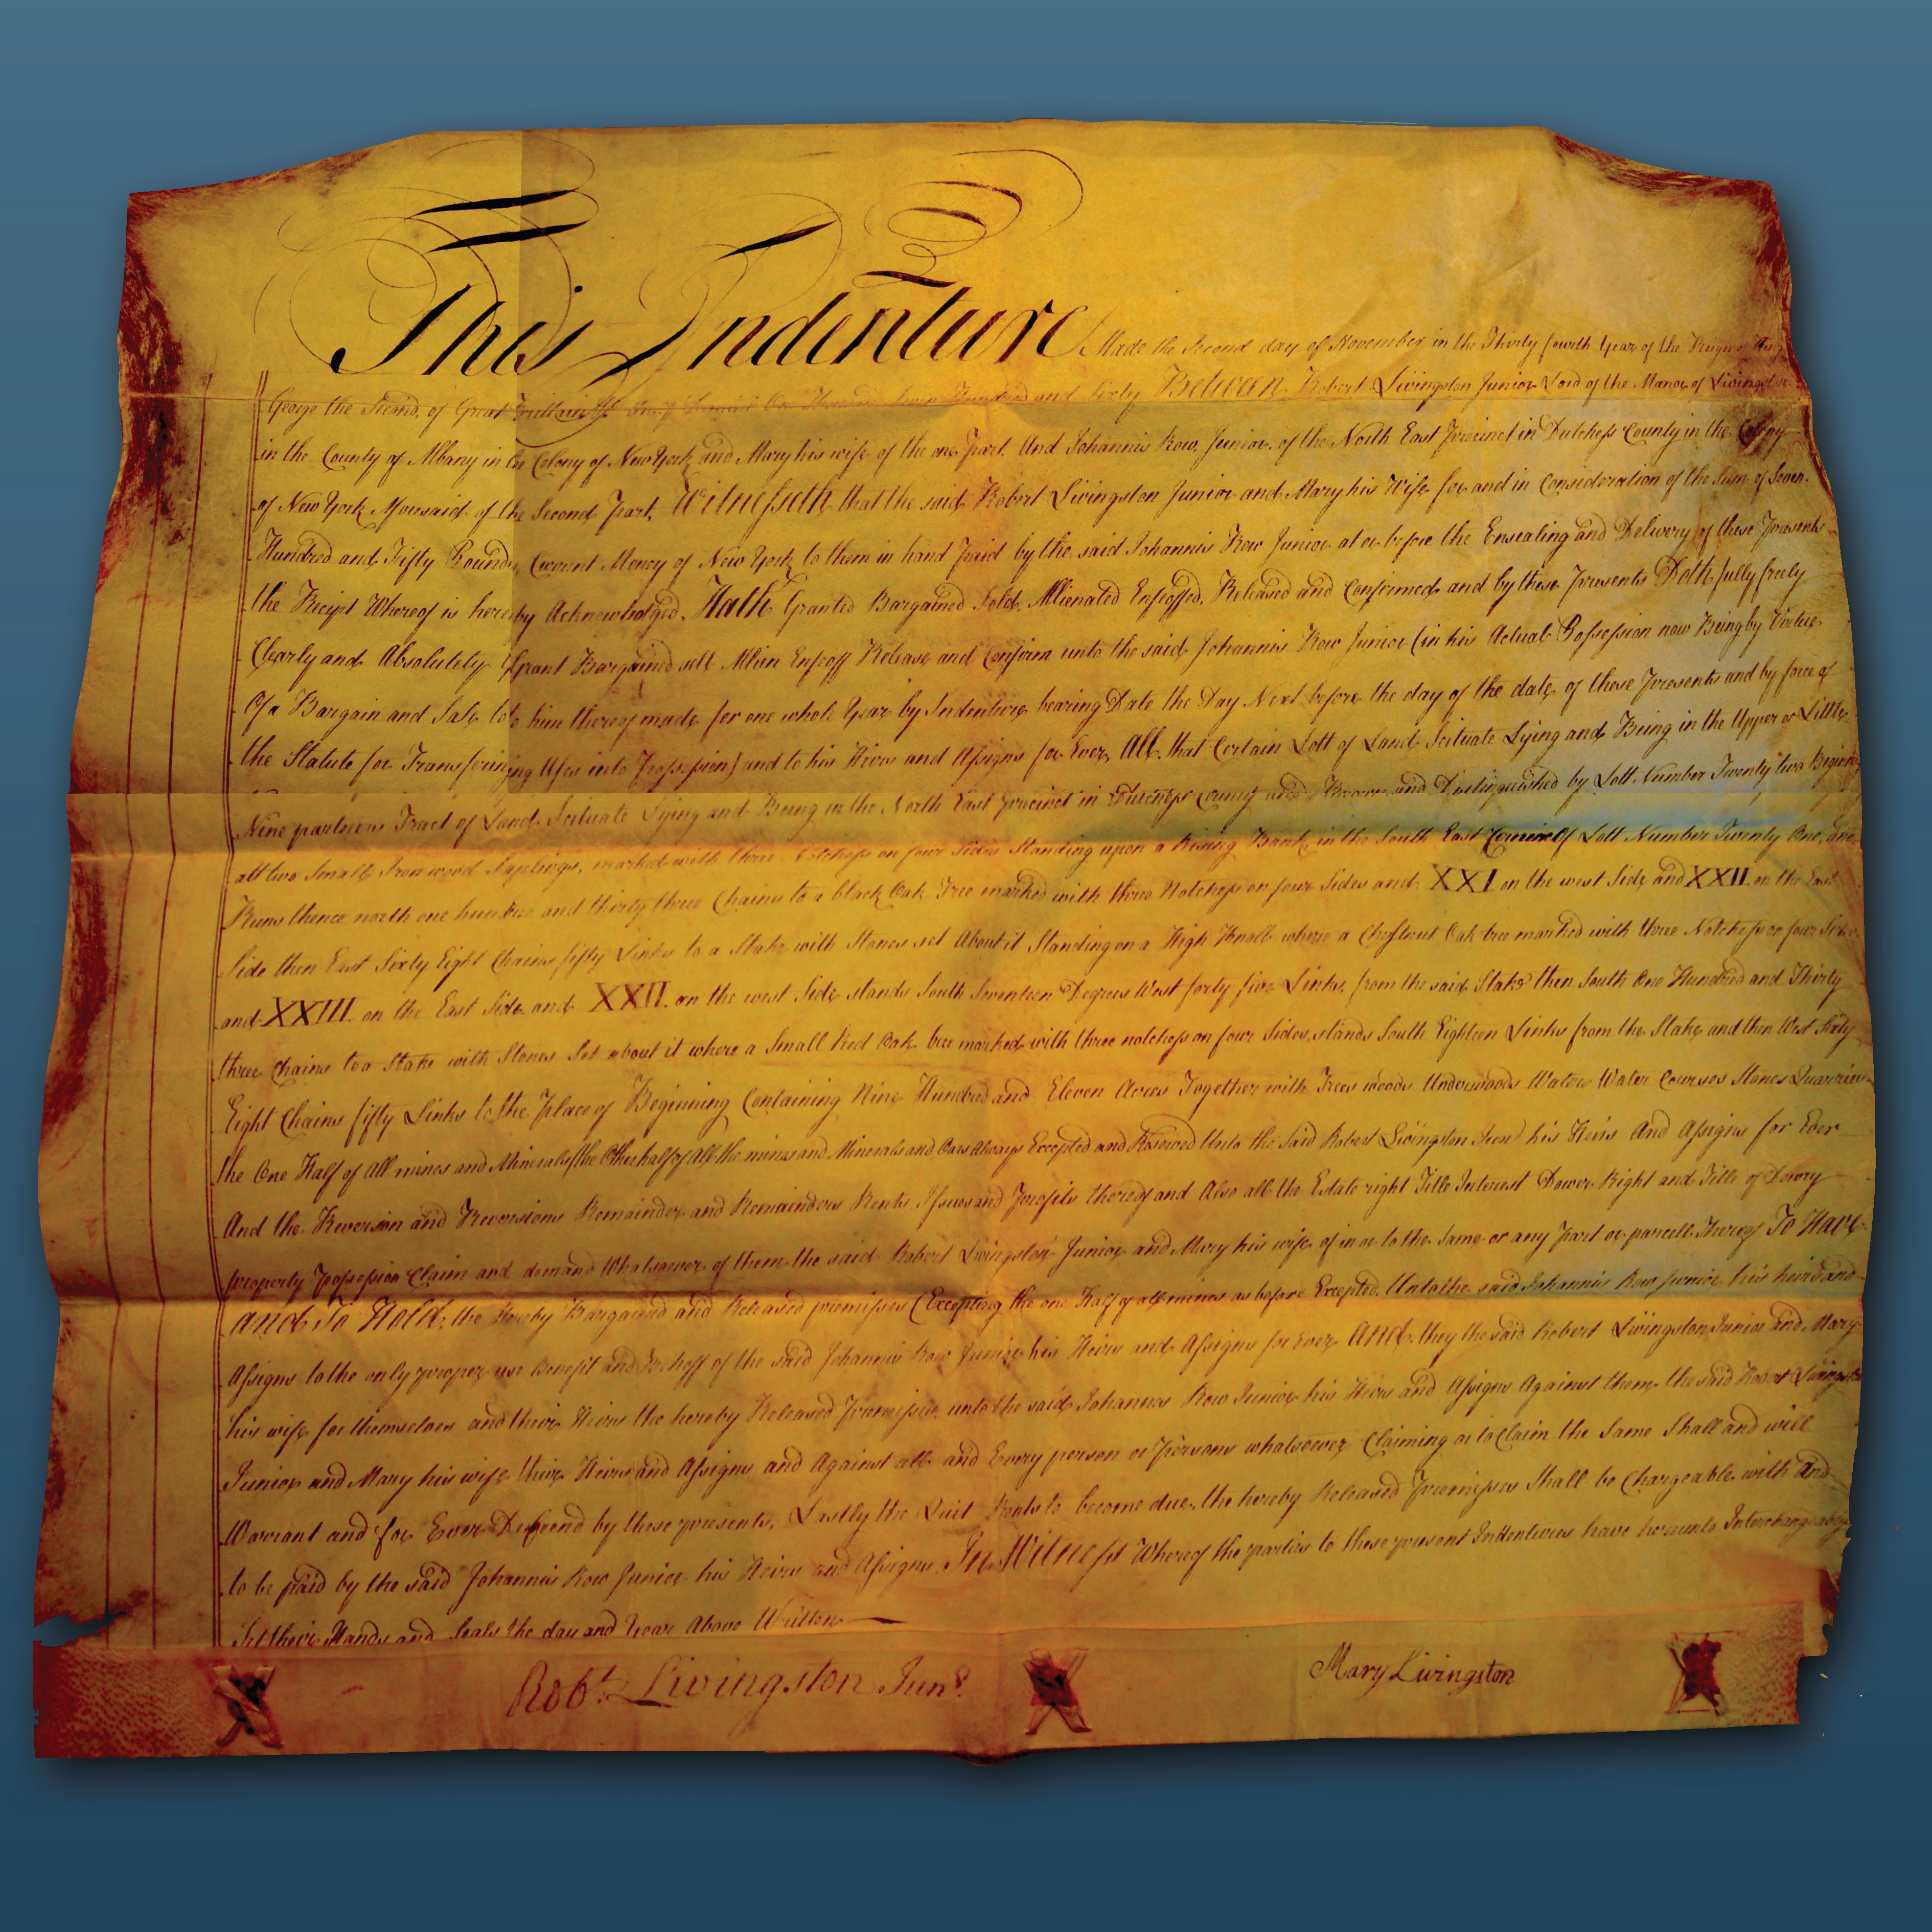 This Indenture Made the Second day of November in the Thirty fourth Year of the Reign of
George the Second, of Great Brittain &c Annoq Domini One Thousand Seven Hundred and Sixty Between Robert Livingston Junior Lord of the Manor of Livingston
in the County of Albany in the Colony of New York and Mary his wife of the one Part. And Johannis Row Junior of the North East Precinct in Dutchess County in the Colony
of New York Aforesaid of the Second Part, Witnesseth that the said Robert Livingston Junior and Mary his Wife for and in Consideration of the Sum of Seven
Hundred and Fifty Pounds Current Money of New York to them in hand Paid by the said Johannis Row Junior at or before the Ensealing and Delivery of these Presents
the Receipt Whereof is hereby Acknowledged, Hath Granted Bargained Sold Allienated Enfeoffed Released and Confirmed and by these Presents Doth fully freely
Clearly and Absolutely Grant Bargained sell Allien Enfeoff Release and Confirm unto the said Johannis Row Junior (in his Actual Possession now Being by Virtue
Of a Bargain and Sale to him thereof made for one whole Year by Indenture bearing Date the Day Next before the day of the date of these Presents and by force of
the Statute for Transferring Uses into Possession) and to his Heirs and Assigns for Ever, All that Certain Lott of Land Scituate Lying and Being in the Upper or Little
Nine partners Tract of Land Scituate Lying and Being in the North East precinct in Dutchess County and Known and Distinguished by Lott Number Twenty two Begining
att two Small Iron wood Saplings, marked with three Notchess on four Sides Standing upon a Rising Bank in the South East Corner Of Lott Number Twenty One, and
Runs thence north one hundred and thirty three Chains to a black Oak Tree marked with three Notchess on four Sides and XXI on the west Side and XXII on the East
Side then East Sixty Eight Chains fifty Links to a Stake with Stones set About it Standing on a High Knoll where a Chestnut Oak tree marked with three Notchess on four Sides
and XXIII on the East Side and XXII on the west Side stands South Seventeen Degrees West forty five Links, from the said Stake then South One Hundred and Thirty
three Chains to a Stake with Stones Set about it where a Small Red Oak tree marked with three notchess on four Sides, stands South Eighteen Links from the Stake and then West Sixty
Eight Chains fifty Links to the Place of Beginning Containing Nine Hundred and Eleven Acres Together with Trees woods Underwoods Waters Water Courses Stones Quarries
the One Half of all mines and Minerals (the Other half of All the mines and Minerals and Oars Always Excepted and Reserved Unto the Said Robert Livingston Junr) his Heirs And Assigns for Ever
And the Reversion and Reversions Remainder and Remainders Rents Issues and Profits thereof and Also all the Estate right Title Interest Dower Right and Title of Dowry
property Possession Claim and demand Whatsoever of them the said Robert Livingston Junior and Mary his wife of in or to the Same or any Part or parcell Thereof To Have
and To Hold, the hereby Bargained and Released premisses (Excepting the one Half of all mines as before Excepted Unto the said Johannis Row Junior his heirs and
Assigns to the only proper use Benefit and Behoff of the said Johannis Row Junior his Heirs and Assigns for Ever And they the said Robert Livingston Junior and Mary
his wife for themselves and their Heirs the hereby Released Premisses unto the said Johannes Row Junior his Heirs and Assigns Against them the said Robert Livingston
Junior and Mary his wife their Heirs and Assigns and Against all and Every person or Persons whatsoever Claiming or to Claim the Same Shall and will
Warrant and for Ever Defend by these presents, Lastly the Quit Rents to become due the hereby Released Premisses Shall be Chargeable with And
to be paid by the said Johannis Row Junior his Heirs and Assigns In Witness Whereof the parties to these present Indentures have hereunto Interchangeably
Set their Hands and Seals the day and Year Above Written
Robt. Livingston Junr. Mary Livingston